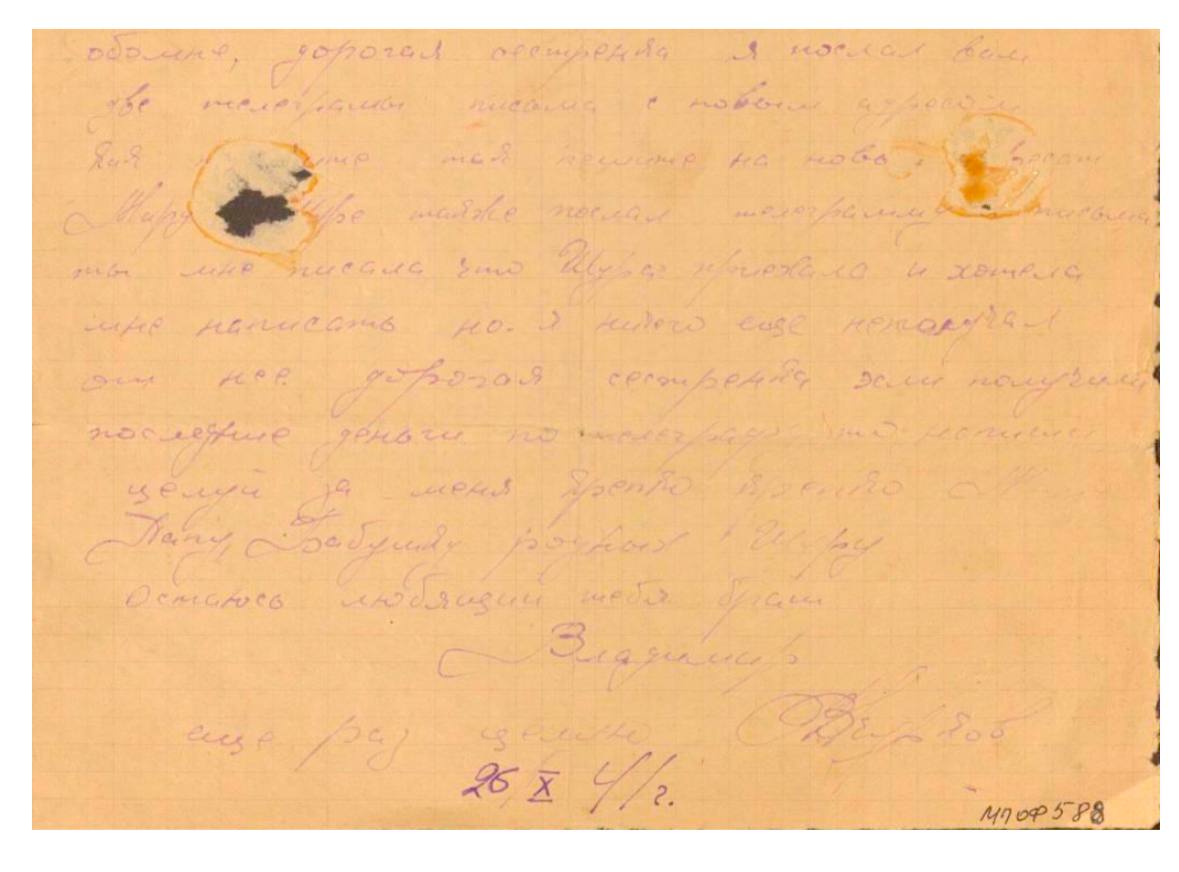 обомне, дорогая сестренка я послал вам
две телеграмы писама с новым адресом
как уже так пешите на новы
Шуре также послал телеграмму писыма
ты мне писала что Шура приехала и хотела
мне написать но. я ничего еще неполучал
от нее. дорогая сестренка если получили
последние деньги по телеграфу то напиши
целуй за меня крепко крепко
Папу, Бабушку родных Шуру
Остаюсь любящий тебя брат
Владимир
еще раз целую
26 X 41 г.
МПОФ 588